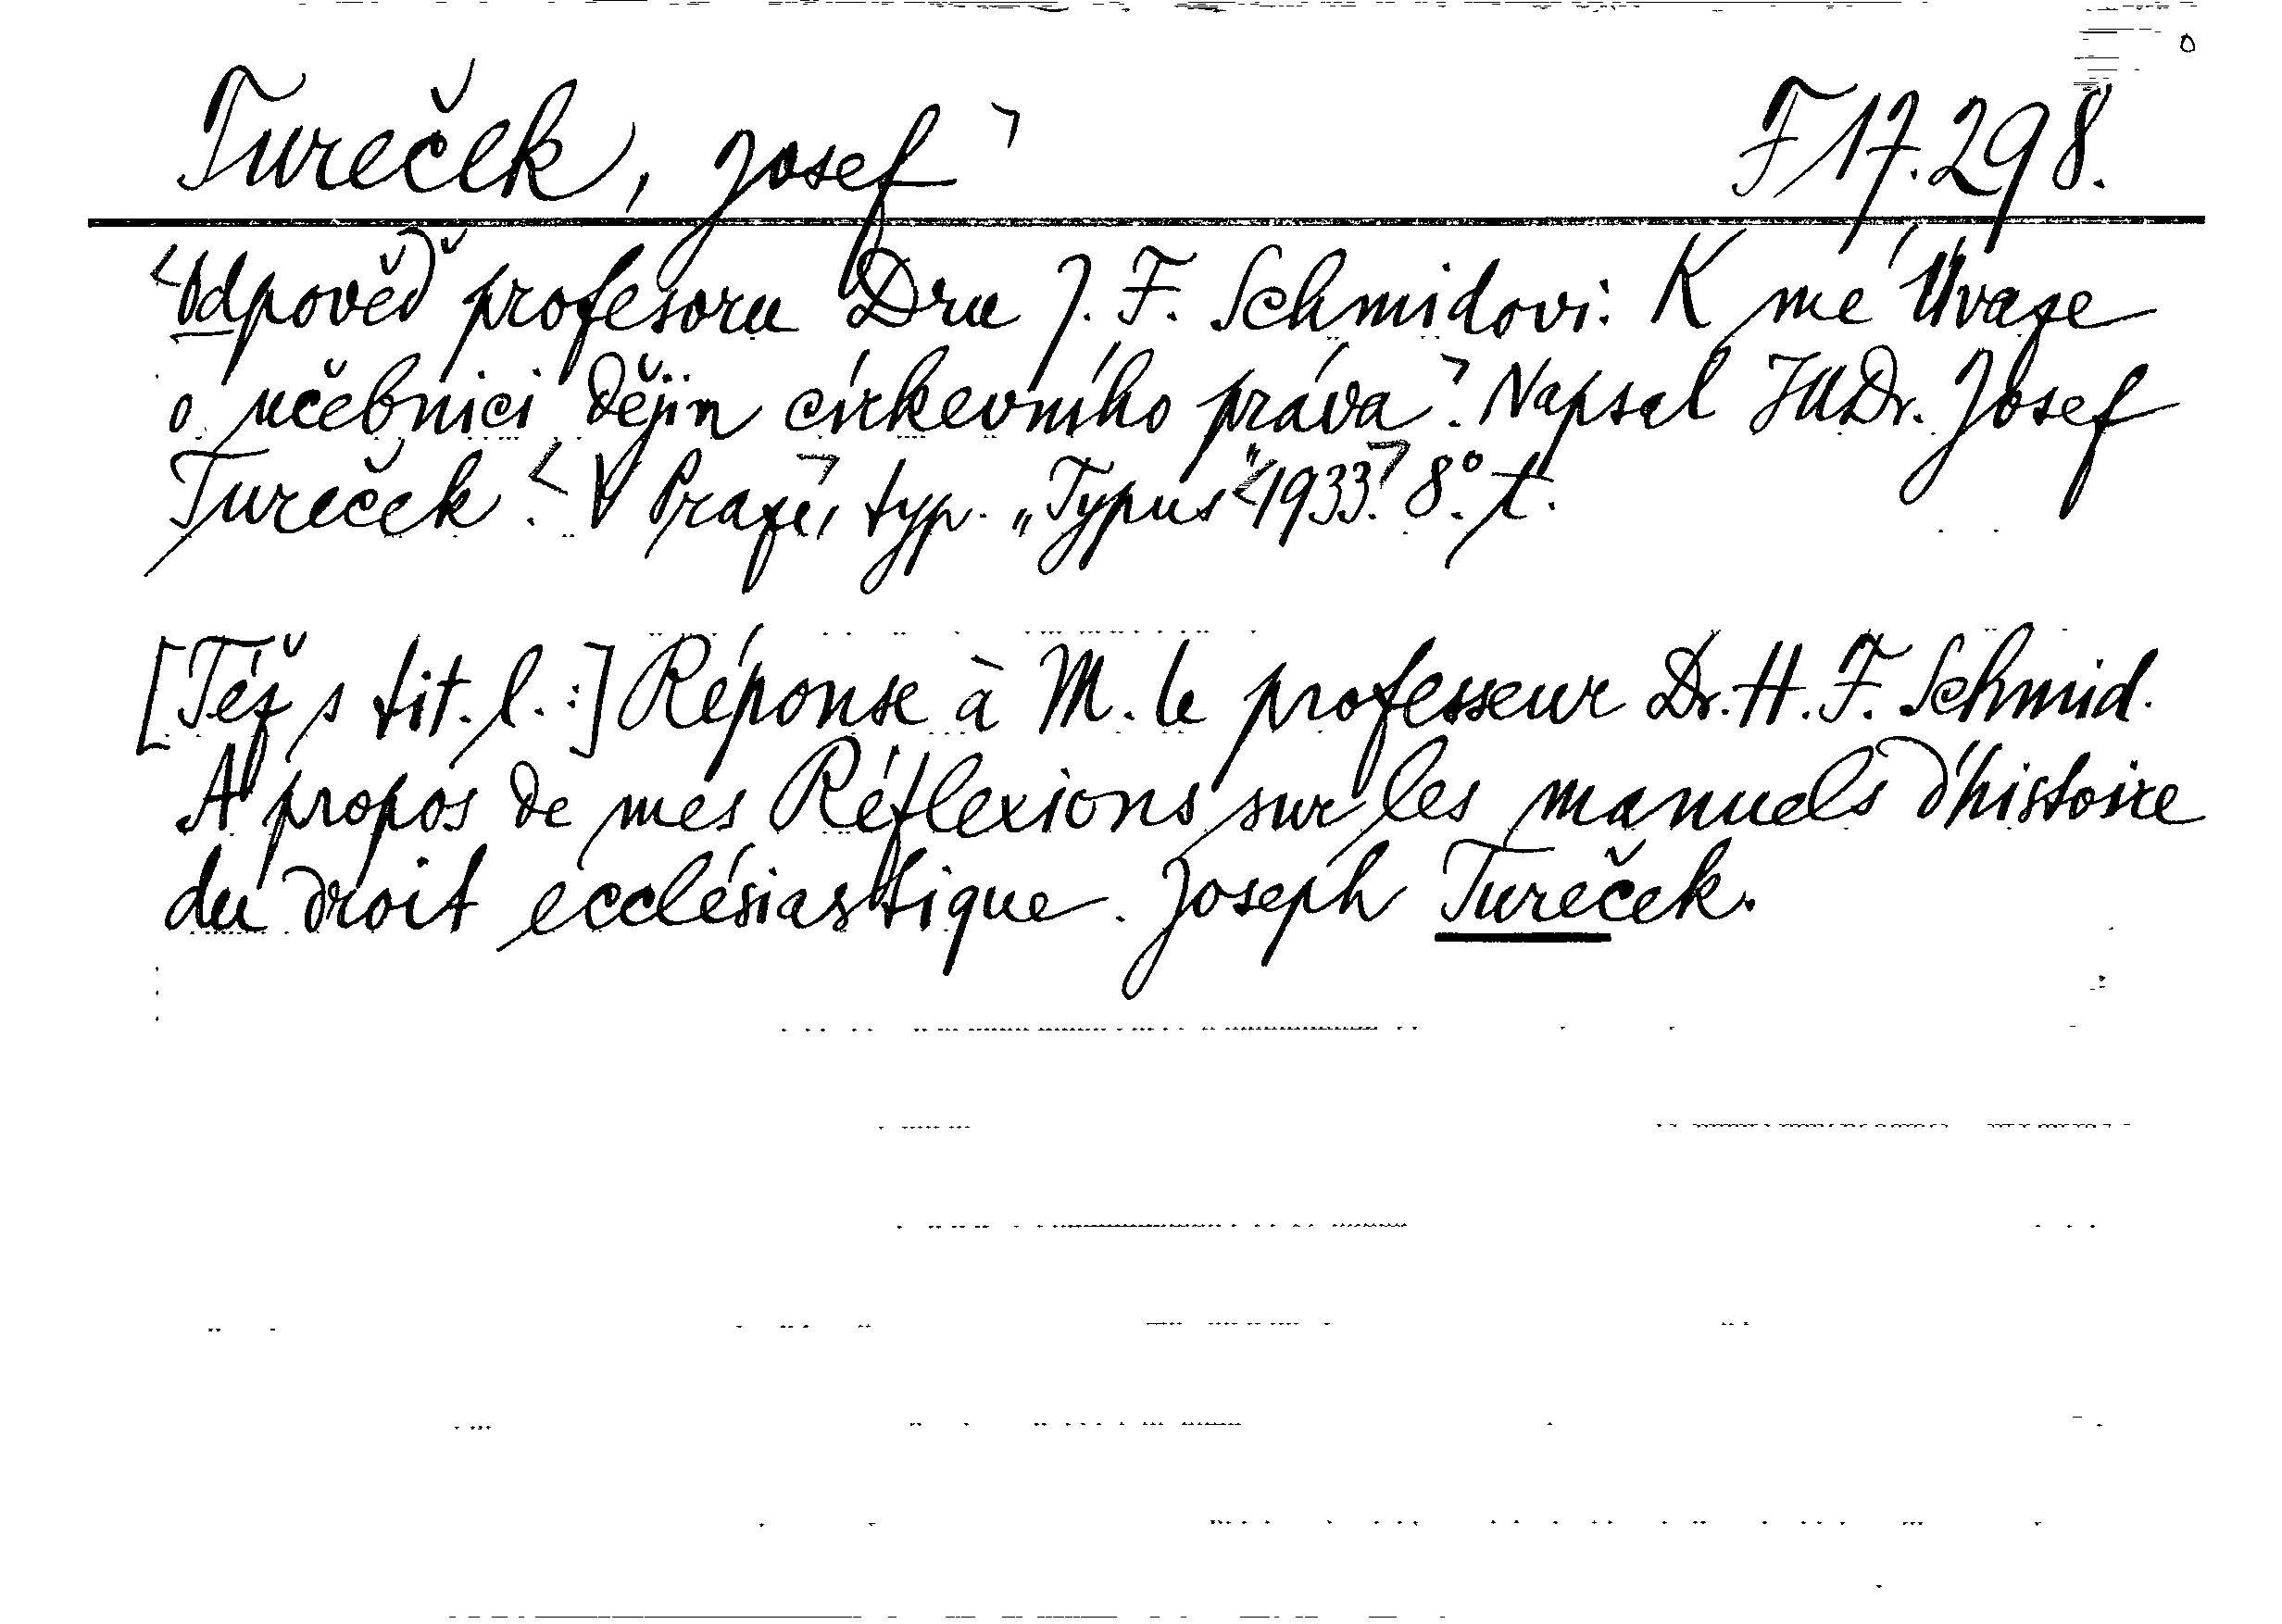 Tureček, Josef ꓶ F 17.298.
<Odpověď profesoru Dru J. F. Schmidovi. K mé Úvaze
o učebnici dějin církevního práva ꓶ. Napsal JUDr. Josef
Tureček. < V Praze, ꓶ typ. „Typus" <1933.ꓶ 8°. t.
[Též s tit. l.:] Réponse à M. le professeur Dr. H. F. Schmid.
A propos de mes Réflexions sur les manuels d'histoire
du droit ecclésiastique. Joseph Tureček.